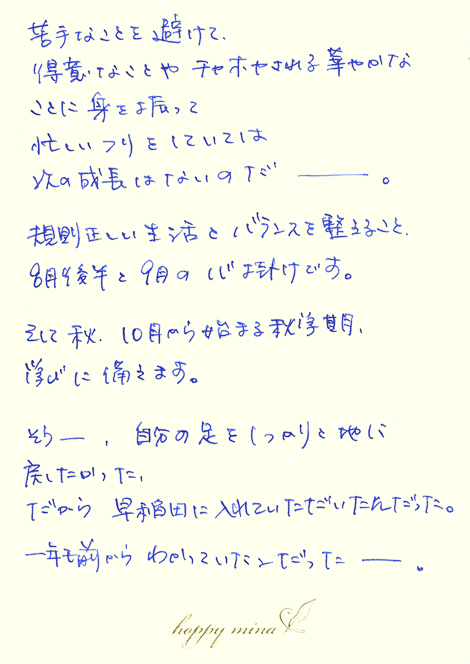 苦手なことを避けて、
得意なことや チヤホヤされる華やかな
ことに 身を振って
忙しいフリをしていては
次の成長はないのだ ―― 。
規則正しい生活とバランスを整えること、
8月後半と9月の心掛けです。
そして 秋、10月から始まる秋学期、
学びに備えます。
そう ― 、自分の足をしっかりと地に
戻したかった、
だから 早稲田に入れていただいたんだった。
一年も前から わかっていたことだった ― 。
happy mina